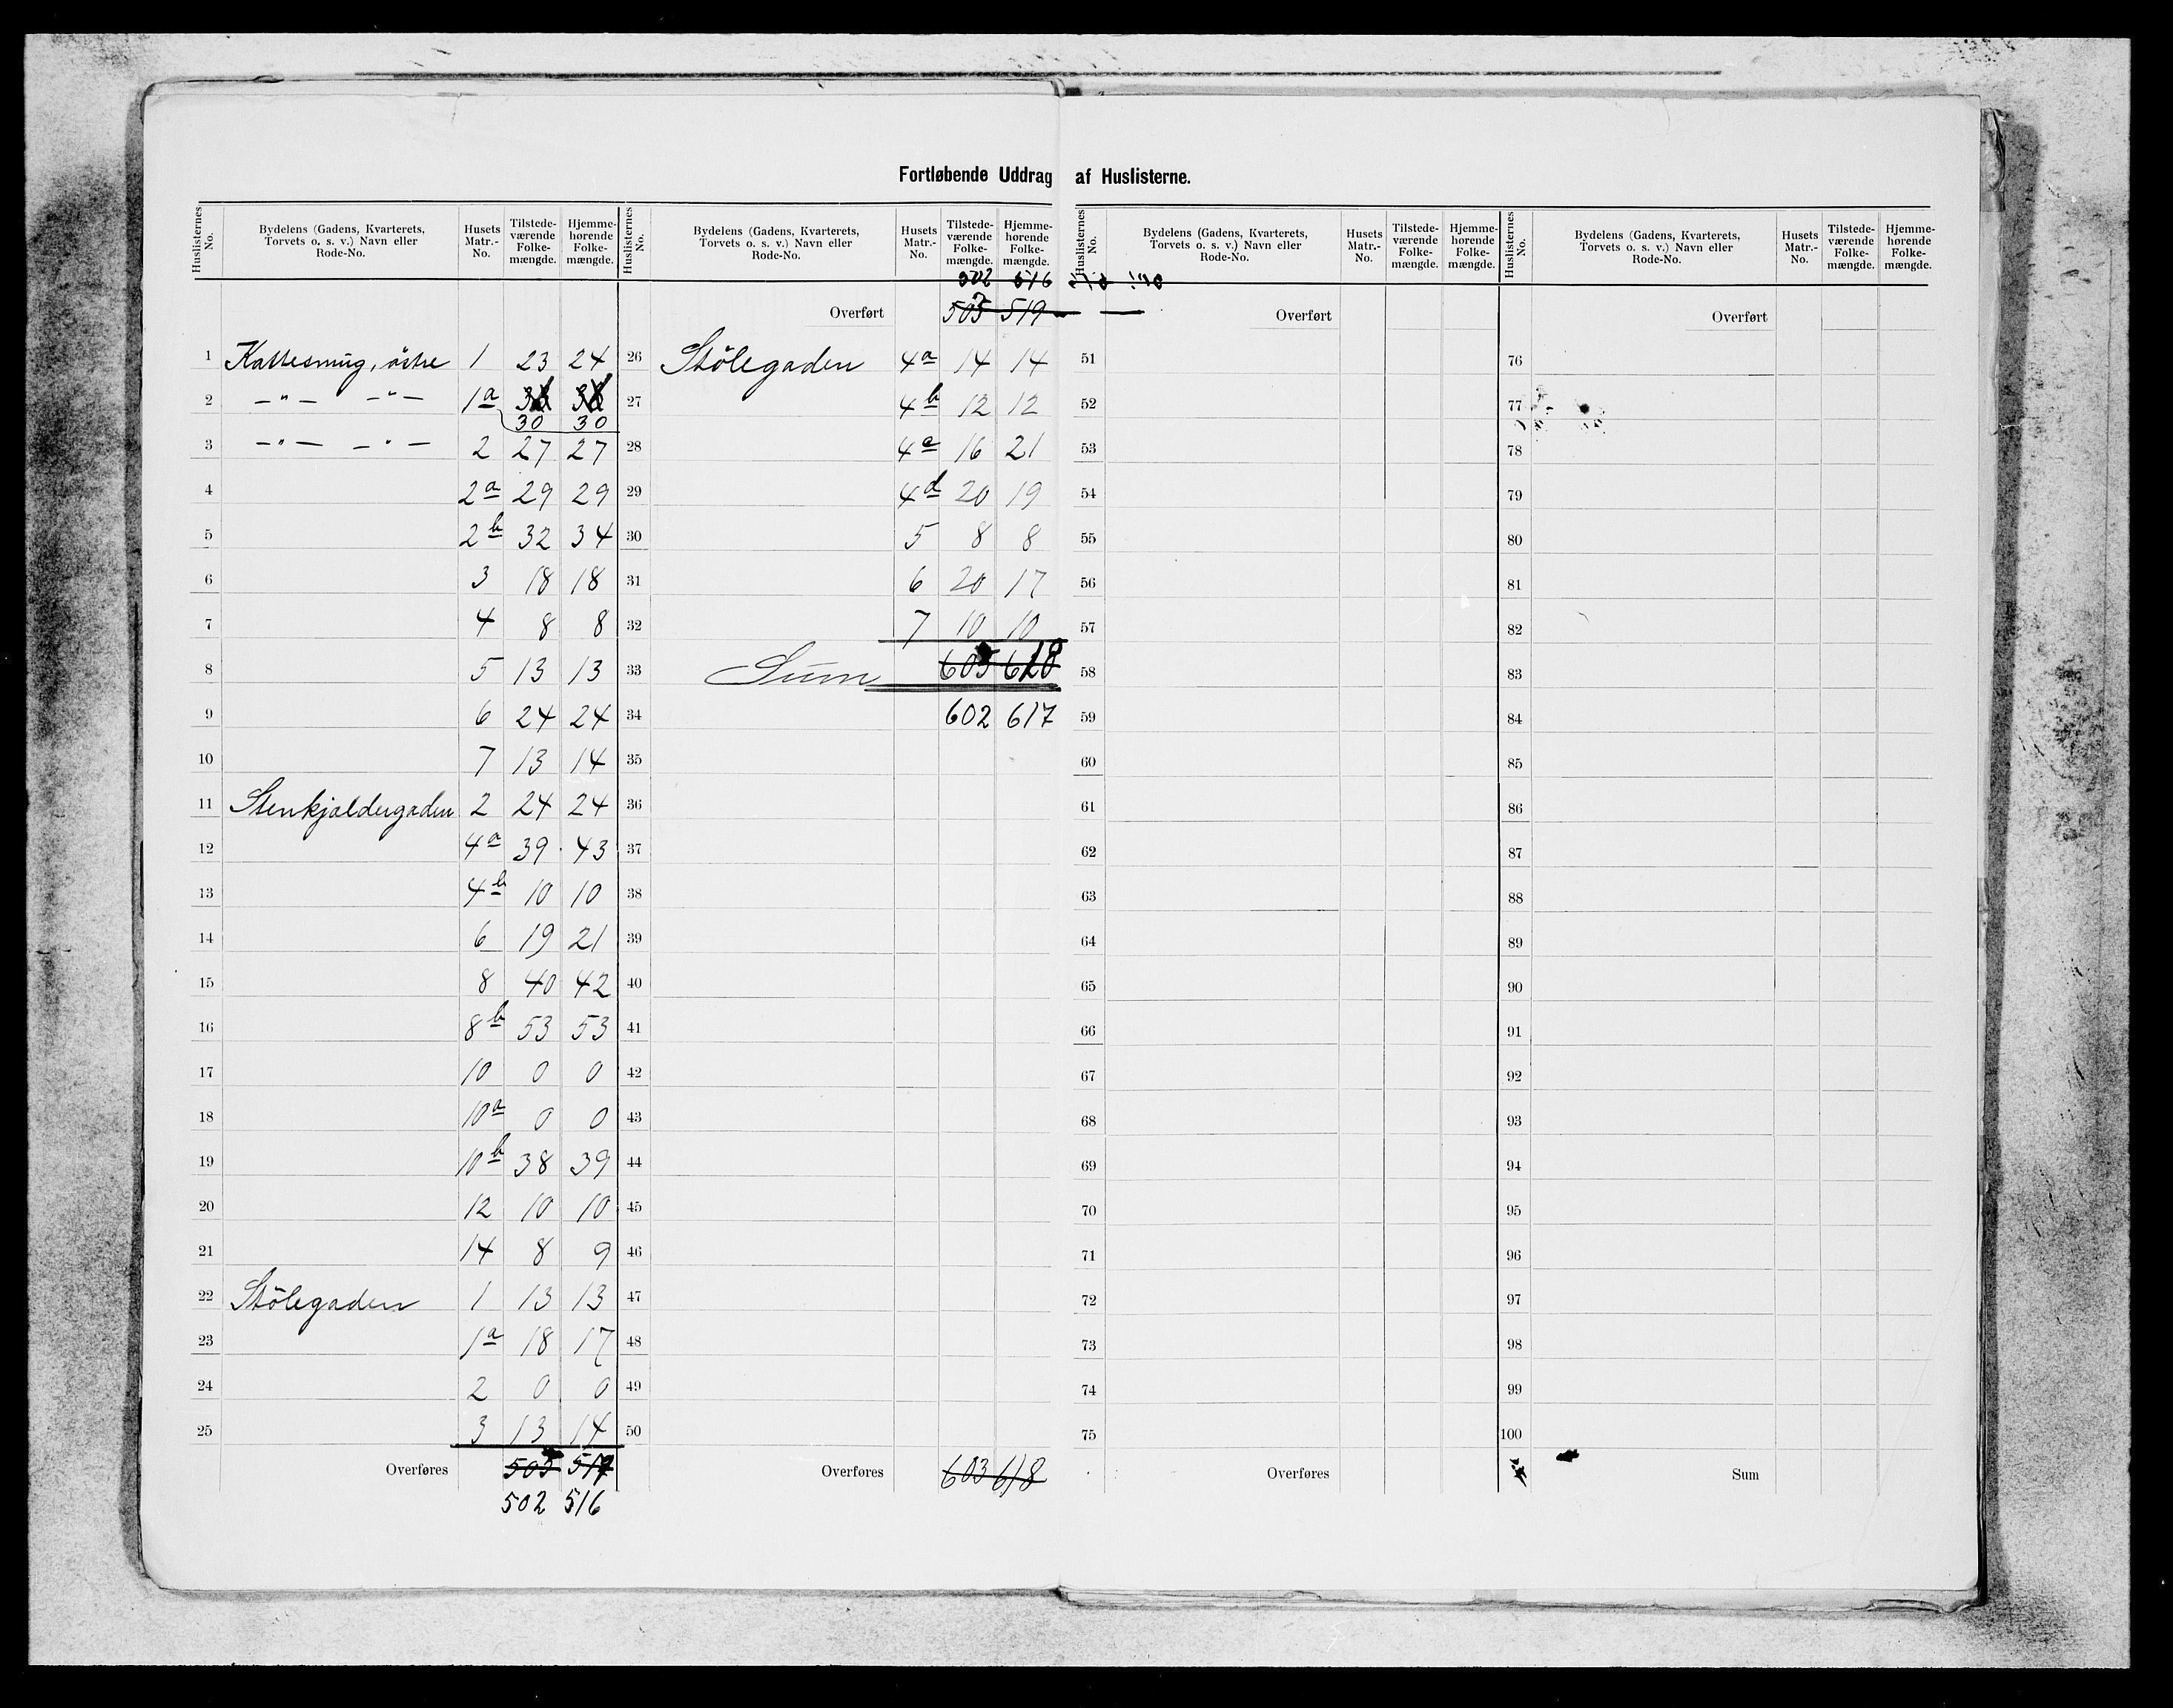 Fortløbende Uddrag af Huslisterne.
Huslisternes No. | Bydelens (Gadens, Kvarterets, Torvets o. s. v.) Navn eller Rode-No. | Husets Matr.-No. | Tilstede-værende Folke-mængde. | Hjemme-hørende Folke-mængde.
1 Kattesmug, östre 1 23 24
2 —"— —"— 1a
30 30
3 —"— —"— 2 27 27
4 2a 29 29
5 2b 32 34
6 3 18 18
7 4 8 8
8 5 13 13
9 6 24 24
10 7 13 14
11 Stenkjældergaden 2 24 24
12 4a 39 43
13 4b 10 10
14 6 19 21
15 8 40 42
16 8b 53 53
17 10 0 0
18 10a 0 0
19 10b 38 39
20 12 10 10
21 14 8 9
22 Stölegaden 1 13 13
23 1a 18 17
24 2 0 0
25 3 13 14
Overføres
502 516
Huslisternes No. | Bydelens (Gadens, Kvarterets, Torvets o. s. v.) Navn eller Rode-No. | Husets Matr.-No. | Tilstede-værende Folke-mængde. | Hjemme-hørende Folke-mængde.
502 516
Overført 503 519
26 Stölegaden 4a 14 14
27 4b 12 12
28 4c 16 21
29 4d 20 19
30 5 8 8
31 6 20 17
32 7 10 10
33 Sum
34 602 617
35
36
37
38
39
40
41
42
43
44
45
46
47
48
49
50
Overføres 603 618
Huslisternes No. | Bydelens (Gadens, Kvarterets, Torvets o. s. v.) Navn eller Rode-No. | Husets Matr.-No. | Tilstede-værende Folke-mængde. | Hjemme-hørende Folke-mængde.
Overført
51
52
53
54
55
56
57
58
59
60
61
62
63
64
65
66
67
68
69
70
71
72
73
74
75
Overføres
Huslisternes No. | Bydelens (Gadens, Kvarterets, Torvets o. s. v.) Navn eller Rode-No. | Husets Matr.-No. | Tilstede-værende Folke-mængde. | Hjemme-hørende Folke-mængde.
Overført
76
77
78
79
80
81
82
83
84
85
86
87
88
89
90
91
92
93
94
95
96
97
98
99
100
Sum